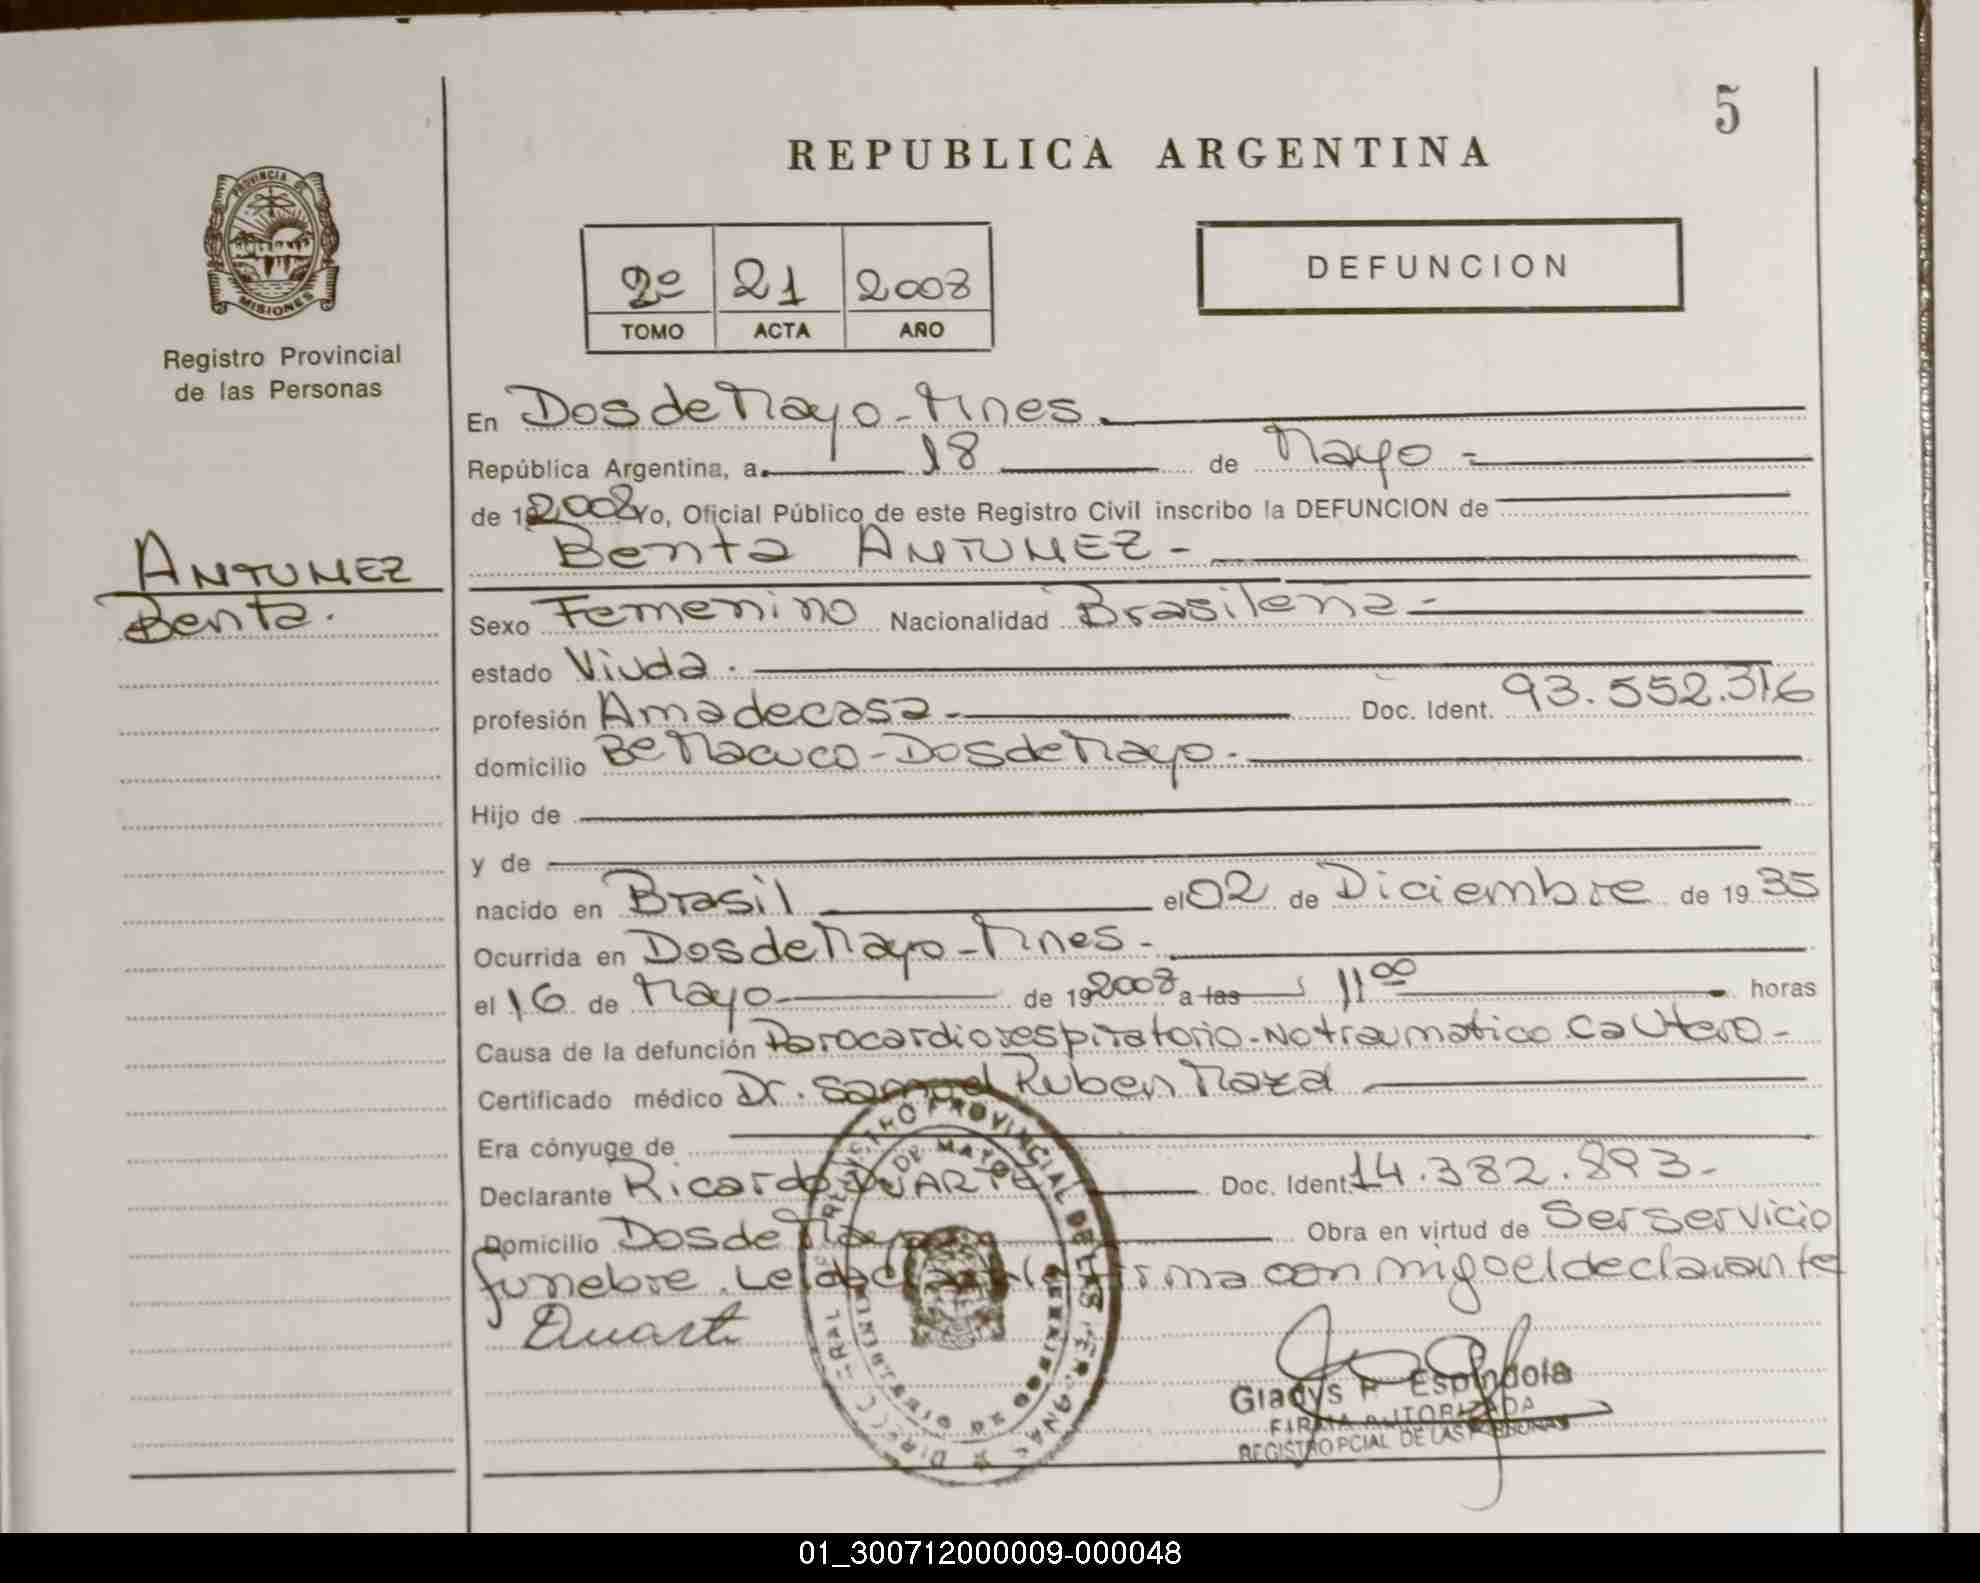 5
REPUBLICA ARGENTINA
PROVINCIA DE
MISIONES
Registro Provincial
de las Personas
2º 21 2008
TOMO ACTA AÑO
DEFUNCION
En Dos de Mayo - Mnes.
República Argentina, a 18 de Mayo -
de 19 2008 Yo, Oficial Público de este Registro Civil inscribo la DEFUNCION de
Benta ANTUNEZ -
ANTUNEZ
Benta.
Sexo Femenino Nacionalidad Brasilena -
estado Viuda.
profesión Ama de casa - Doc. Ident. 93.552.316
domicilio Bº Macuco - Dos de Mayo.
Hijo de
y de
nacido en Brasil el 02 de Diciembre de 19 35
Ocurrida en Dos de Mayo - Mnes -
el 16 de Mayo de 19 2008 a las 11 00 horas
Causa de la defunción Parocardiorespiratorio - No traumatico. Ca Utero -
Certificado médico Dr. Samuel Ruben Maza
Era cónyuge de
Declarante Ricardo DUARTE Doc. Ident. 14.382.893 -
Domicilio Dos de Mayo Obra en virtud de Ser servicio
funebre. Leida el acta la firma conmigo el declarante
Duarte
REGISTRO PROVINCIAL DE LAS PERSONAS
DE MAYO
Gladys P. Espindola
FIRMA AUTORIZADA
REGISTRO PCIAL DE LAS PERSONAS
01_300712000009-000048